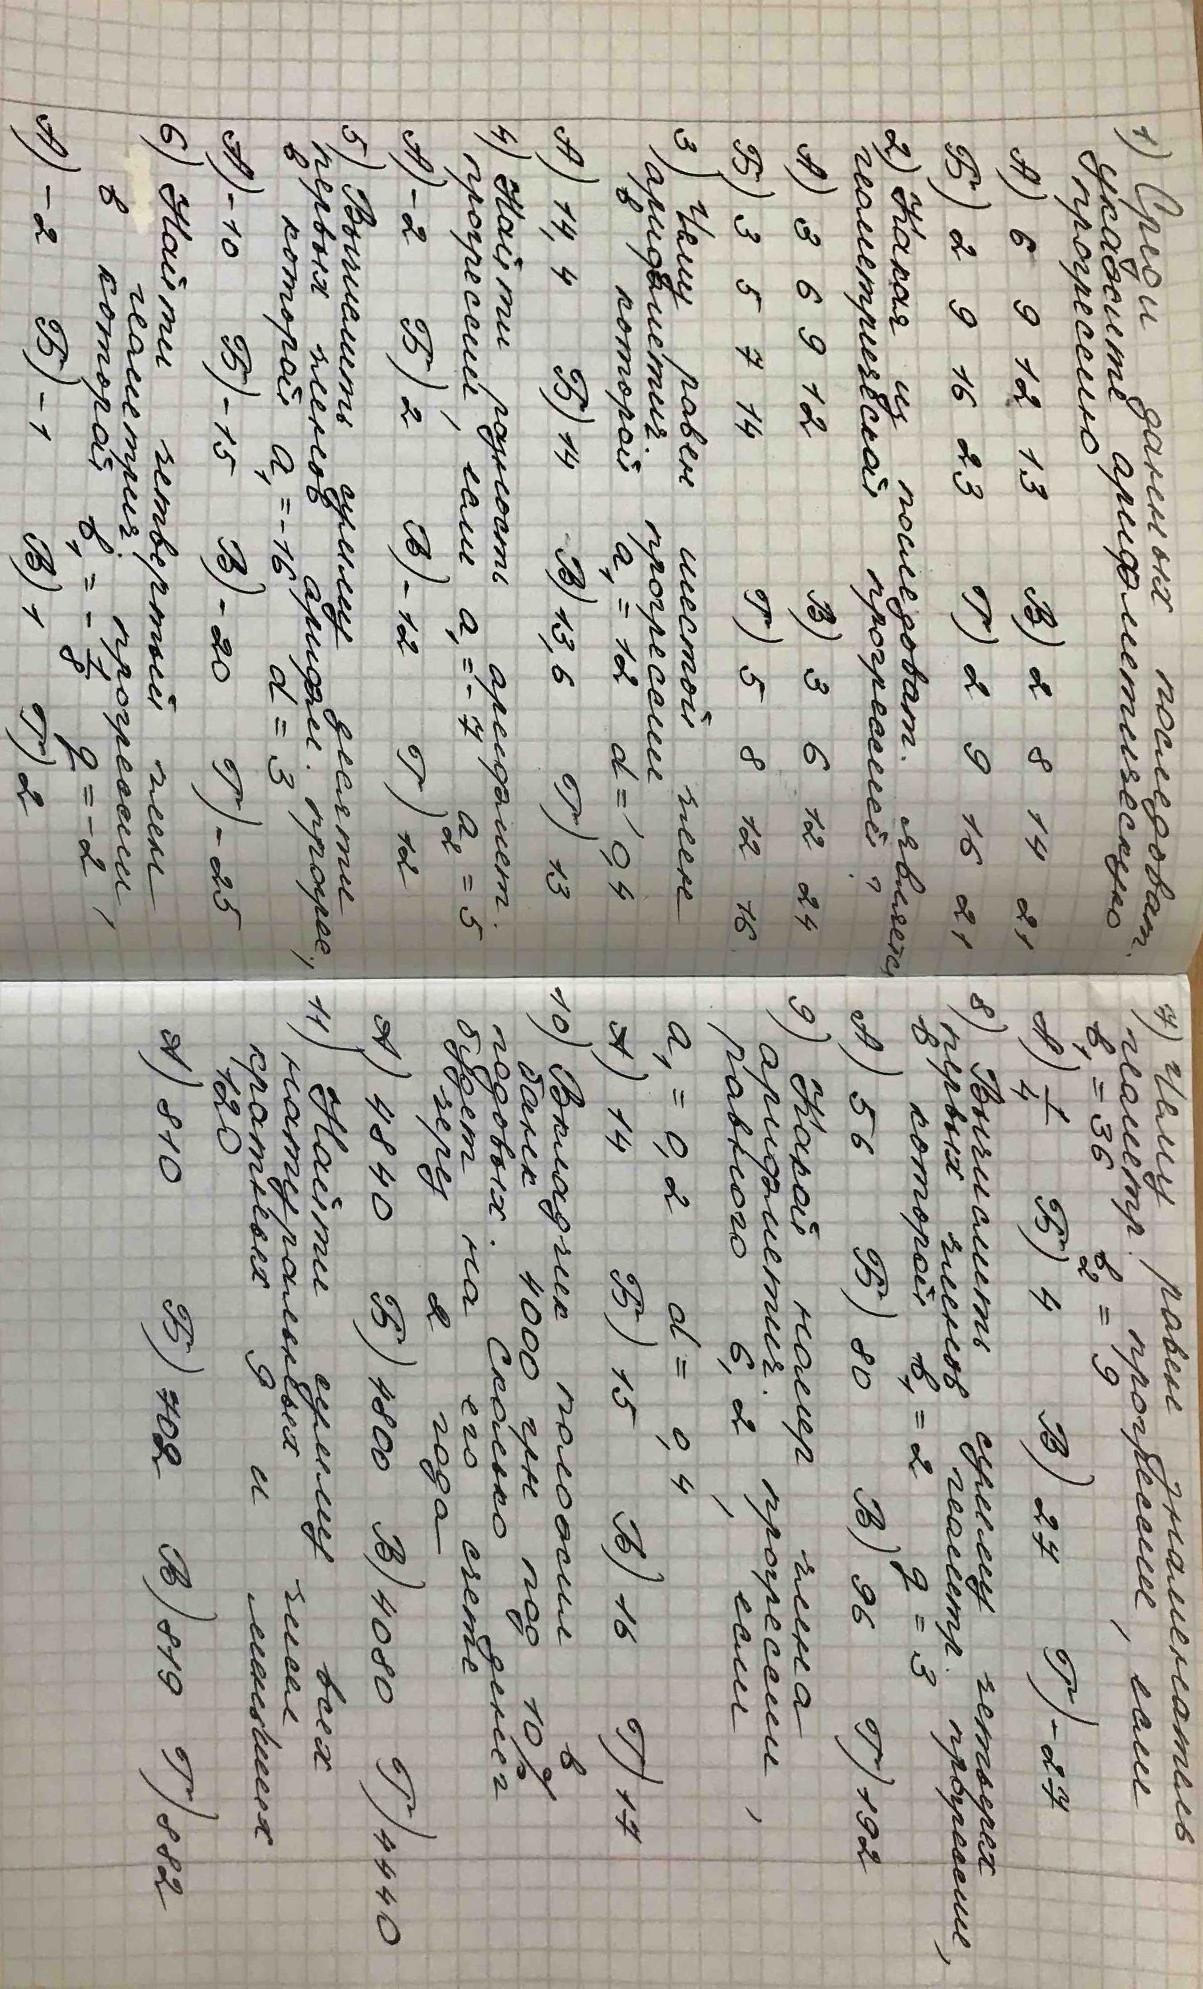 1) Среди данных последоват.
укажите арифметическую
прогрессию
А) 6 9 12 13 В) 2 8 14 21
Б) 2 9 16 23 Г) 2 9 16 21
2) Какая из последоват. является
геометрической прогрессией?
А) 3 6 9 12 В) 3 6 12 24
Б) 3 5 7 14 Г) 5 8 12 16
3) Чему равен шестой член
арифметич. прогрессии
в которой a₁ = 12 d = 0,4
А) 14,4 Б) 14 В) 13,6 Г) 13
4) Найти разность арифмет.
прогрессии, если a₁ = -7 a₂ = 5
А) -2 Б) 2 В) -12 Г) 12
5) Вычислить сумму десяти
первых членов арифм. прогрес.,
в которой a₁ = -16 d = 3
А) -10 Б) -15 В) -20 Г) -25
6) Найти четвертый член
геометрич. прогрессии,
в которой b₁ = -1/8 q = -2
А) -2 Б) -1 В) 1 Г) 2
7) Чему равен знаменатель
геометр. прогрессии, если
b₁ = 36 b₂ = 9
А) 1/4 Б) 4 В) 27 Г) -27
8) Вычислить сумму четырех
первых членов геометр. прогрессии,
в которой b₁ = 2 q = 3
А) 56 Б) 80 В) 96 Г) 192
9) Какой номер члена
арифметич. прогрессии,
равного 6,2, если
a₁ = 0,2 d = 0,4
А) 14 Б) 15 В) 16 Г) 17
10) Вкладчик положил в
банк 4000 грн под 10%
годовых. Сколько денег
будет на его счете
через 2 года
А) 4840 Б) 4800 В) 4080 Г) 4440
11) Найти сумму всех
натуральных чисел
кратных 9 и меньших
120
А) 810 Б) 702 В) 819 Г) 882